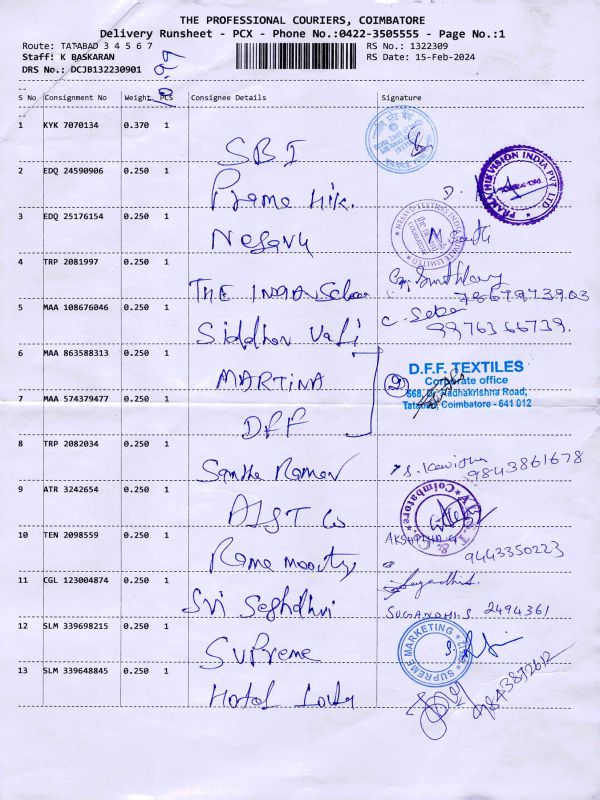 THE PROFESSIONAL COURIERS, COIMBATORE
Delivery Runsheet - PCX - Phone No.:0422-3505555 - Page No.:1
Route: TATABAD 3 4 5 6 7 RS No.: 1322309
Staff: K BASKARAN RS Date: 15-Feb-2024
DRS No.: DCJB132230901
S No Consignment No Weight PCS Consignee Details Signature
1 KYK 7070134 0.370 1 SBI
2 EDQ 24590906 0.250 1 Prame Hik. PRAMA HIKVISION INDIA PVT. LTD.
3 EDQ 25176154 0.250 1 Nesavu
4 TRP 2081997 0.250 1 THE INDIAN 7867973903
5 MAA 108676046 0.250 1 Siddhar Vali 9976366739.
6 MAA 863588313 0.250 1 MARTINA 2 D.F.F. TEXTILES
Corporate office
568, Dr. Radhakrishna Road,
Tatabad, Coimbatore - 641 012
7 MAA 574379477 0.250 1 DFF
8 TRP 2082034 0.250 1 Santhe Raman 9843861678
9 ATR 3242654 0.250 1 Coimbatore
10 TEN 2098559 0.250 1 Rame 9443350223
11 CGL 123004874 0.250 1 Sri SUGANDHI.S 2494361
12 SLM 339698215 0.250 1 Supreme SUPREME MARKETING
13 SLM 339648845 0.250 1 Hotel